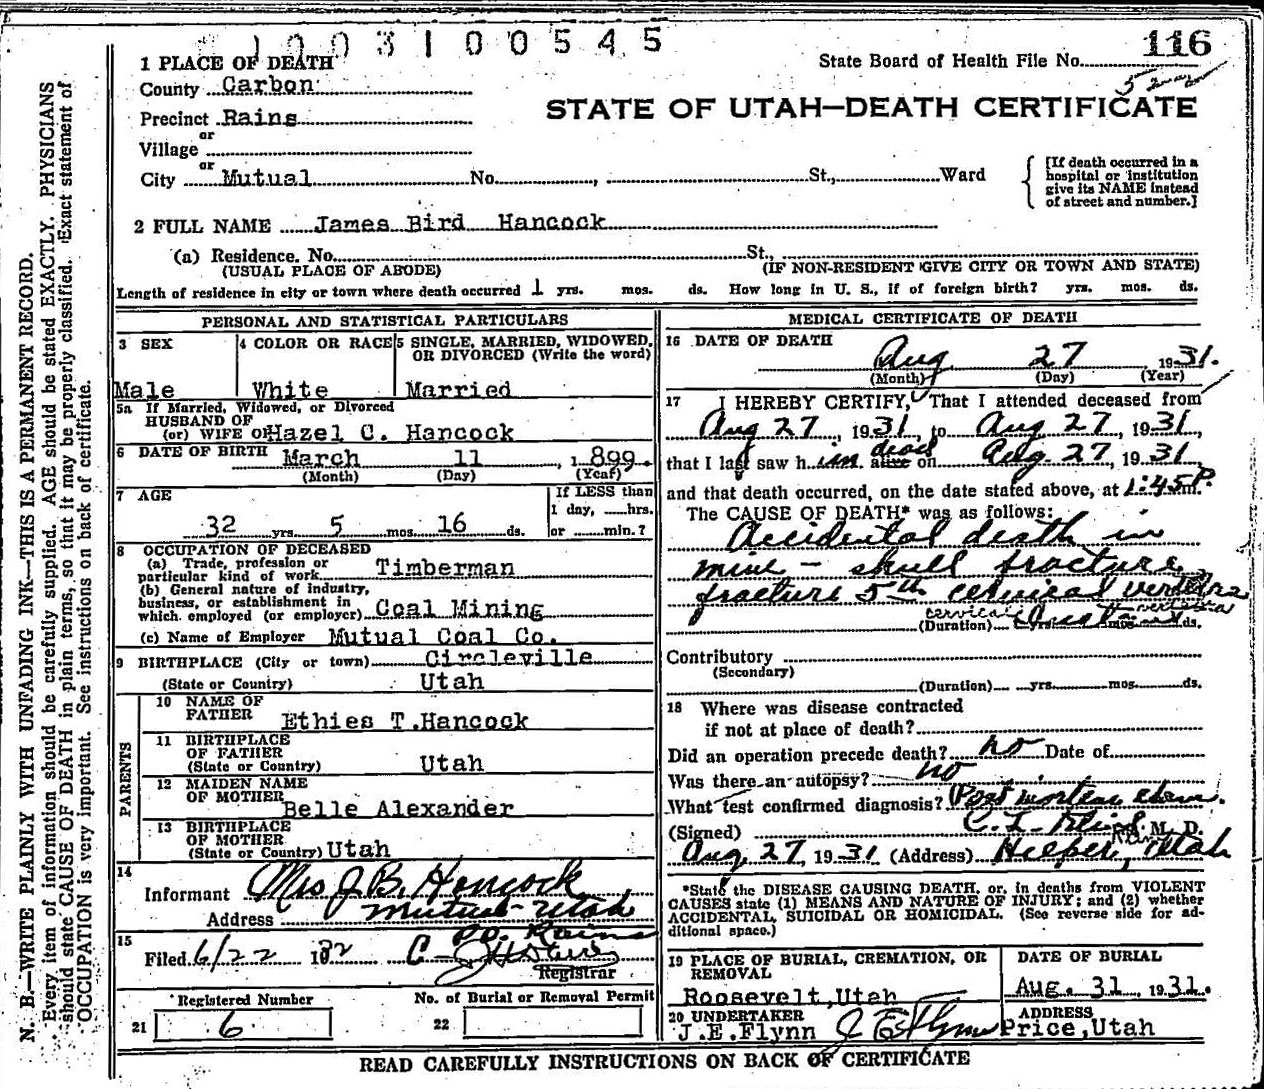 1003100545
116
State Board of Health File No.
STATE OF UTAH—DEATH CERTIFICATE
1 PLACE OF DEATH
County Carbon
Precinct Rains
or
Village
or
City Mutual No. , St., Ward
[If death occurred in a
hospital or institution
give its NAME instead
of street and number.]
2 FULL NAME James Bird Hancock
(a) Residence. No. St.,
(USUAL PLACE OF ABODE) (IF NON-RESIDENT GIVE CITY OR TOWN AND STATE)
Length of residence in city or town where death occurred 1 yrs. mos. ds. How long in U. S., if of foreign birth? yrs. mos. ds.
PERSONAL AND STATISTICAL PARTICULARS
3 SEX 4 COLOR OR RACE 5 SINGLE, MARRIED, WIDOWED,
OR DIVORCED (Write the word)
Male White Married
5a If Married, Widowed, or Divorced
HUSBAND OF
(or) WIFE OF Hazel C. Hancock
6 DATE OF BIRTH March 11 , 1899.
(Month) (Day) (Year)
7 AGE If LESS than
1 day, hrs.
32 yrs. 5 mos. 16 ds. or min.?
8 OCCUPATION OF DECEASED
(a) Trade, profession or
particular kind of work Timberman
(b) General nature of industry,
business, or establishment in
which employed (or employer) Coal Mining
(c) Name of Employer Mutual Coal Co.
9 BIRTHPLACE (City or town) Circleville
(State or Country) Utah
PARENTS
10 NAME OF
FATHER Ethies T.Hancock
11 BIRTHPLACE
OF FATHER
(State or Country) Utah
12 MAIDEN NAME
OF MOTHER Belle Alexander
13 BIRTHPLACE
OF MOTHER
(State or Country) Utah
14
Informant Mrs J B. Hancock
Address Mutual-Utah
PO. Rains
15
Filed 6/22 1932
Registrar
Registered Number No. of Burial or Removal Permit
21 6 22
MEDICAL CERTIFICATE OF DEATH
16 DATE OF DEATH
Aug 27 1931.
(Month) (Day) (Year)
17 I HEREBY CERTIFY, That I attended deceased from
Aug 27, 1931, to Aug 27, 1931,
that I last saw him dead alive on Aug. 27, 1931
and that death occurred, on the date stated above, at 1:45 P.m.
The CAUSE OF DEATH* was as follows:
Accidental death in
mine - skull fracture
fracture 5th cervical vertebra
cervical vertebra
(Duration) yrs. mos. ds.
Contributory
(Secondary)
(Duration) yrs. mos. ds.
18 Where was disease contracted
if not at place of death?
Did an operation precede death? no Date of
Was there an autopsy? no
What test confirmed diagnosis? Post mortem exam.
(Signed) C. L. M. D.
Aug 27, 1931 (Address) Helper, Utah
*State the DISEASE CAUSING DEATH, or, in deaths from VIOLENT
CAUSES state (1) MEANS AND NATURE OF INJURY; and (2) whether
ACCIDENTAL, SUICIDAL OR HOMICIDAL. (See reverse side for ad-
ditional space.)
19 PLACE OF BURIAL, CREMATION, OR
REMOVAL
Roosevelt,Utah
DATE OF BURIAL
Aug. 31, 1931.
20 UNDERTAKER
J.E.Flynn J E Flynn
ADDRESS
Price,Utah
READ CAREFULLY INSTRUCTIONS ON BACK OF CERTIFICATE
N. B.—WRITE PLAINLY WITH UNFADING INK—THIS IS A PERMANENT RECORD.
Every item of information should be carefully supplied. AGE should be stated EXACTLY. PHYSICIANS
should state CAUSE OF DEATH in plain terms, so that it may be properly classified. Exact statement of
OCCUPATION is very important. See instructions on back of certificate.